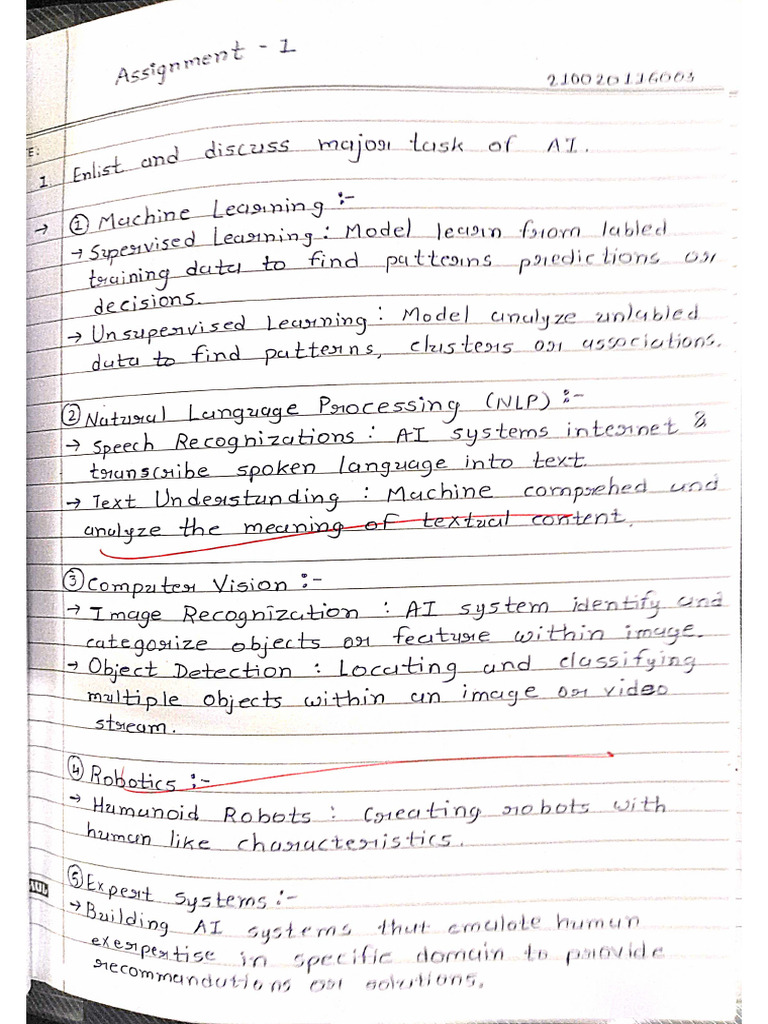 Assignment - 1
210020116003
E:
1. Enlist and discuss major task of AI.
→ ① Machine Learning :-
→ Supervised Learning : Model learn from labled
training data to find patterns predictions or
decisions.
→ Unsupervised Learning : Model analyze unlabled
data to find patterns, clusters or associations.
② Natural Language Processing (NLP) :-
→ Speech Recognizations : AI systems internet &
transcribe spoken language into text.
→ Text Understanding : Machine comprehed and
analyze the meaning of textual content.
③ Computer Vision :-
→ Image Recognization : AI system identify and
categorize objects or feature within image.
→ Object Detection : Locating and classifying
multiple objects within an image or video
stream.
④ Robotics :-
→ Humanoid Robots : Creating robots with
human like characteristics.
⑤ Expert Systems :-
→ Building AI systems that emulate human
exerpertise in specific domain to provide
recommandations or solutions.